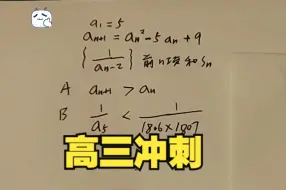 a₁ = 5
aₙ₊₁ = aₙ² - 5aₙ + 9
{ 1/(aₙ-2) } 前n项和Sₙ
A aₙ₊₁ > aₙ
B 1/a₅ < 1/(1806×1807)
高三冲刺